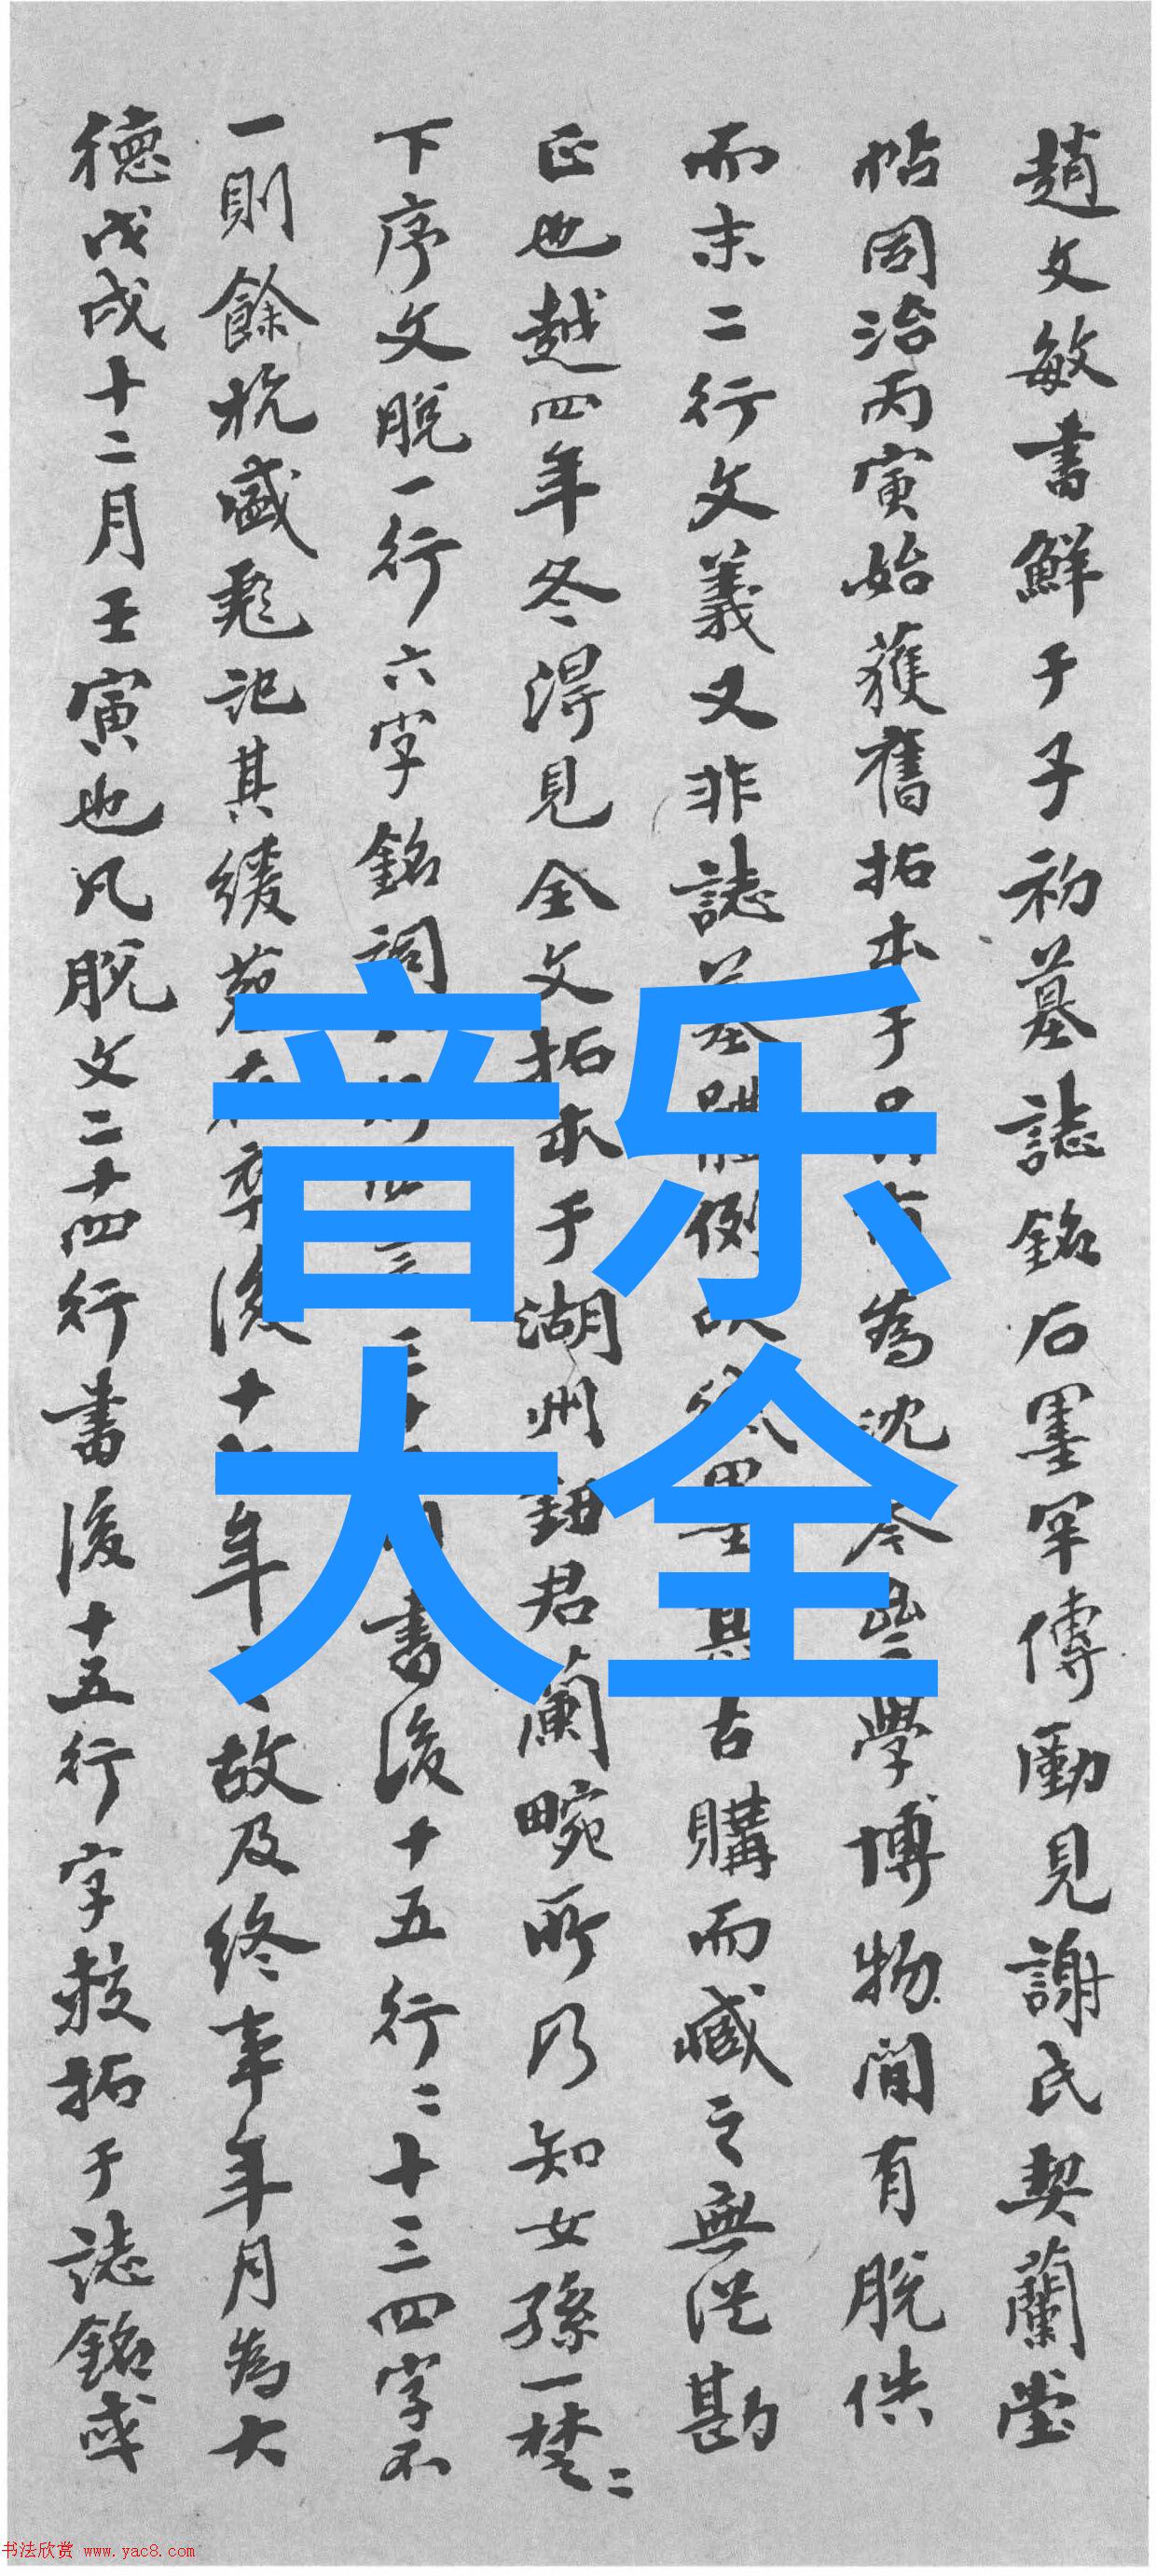 趙文敏書鮮于子初墓誌銘石墨罕傳勵見謝氏契蘭堂
帖同治丙寅始獲舊拓本于為沈學博物間有脫
而末二行文義又非誌墓體例購而藏之無從勘
正也越四年冬得見全文拓本于湖州鈕君蘭畹所乃知女孫一樊二
下序文脫一行六字銘詞書後十五行二十三四字不
一則餘杭盛彪記其緩葬在卒後十年故及終事年月為大
德戊戌十二月壬寅也凡脫文二十四行書後十五行字數拓于誌銘或
音乐
大全
书法欣赏 www.yac8.com